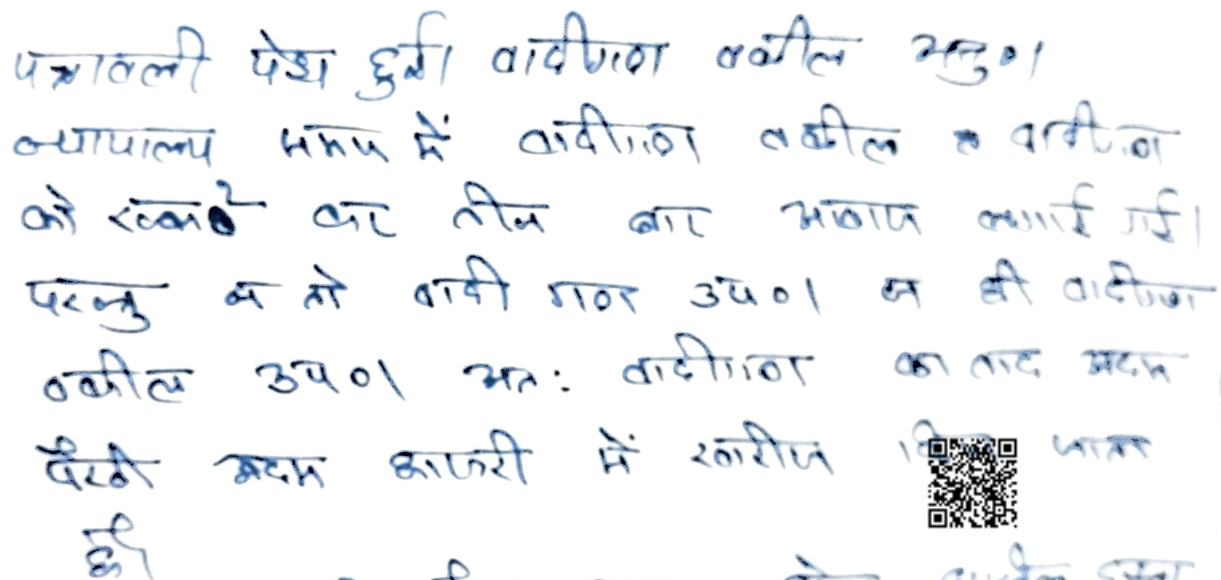 पत्रावली पेश हुई। वादीगण वकील अनु०।
न्यायालय समय में वादीगण वकील व वादीगण
को रूक रूक कर तीन बार आवाज लगाई गई।
परन्तु न तो वादी गण उप०। न ही वादीगण
वकील उप०। अतः वादीगण का वाद अदम
पैरवी अदम हाजरी में खारीज किया जाता
है।